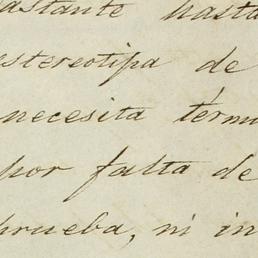 bastante hasta
estereotipa de
necesita term
por falta de
prueba, ni in